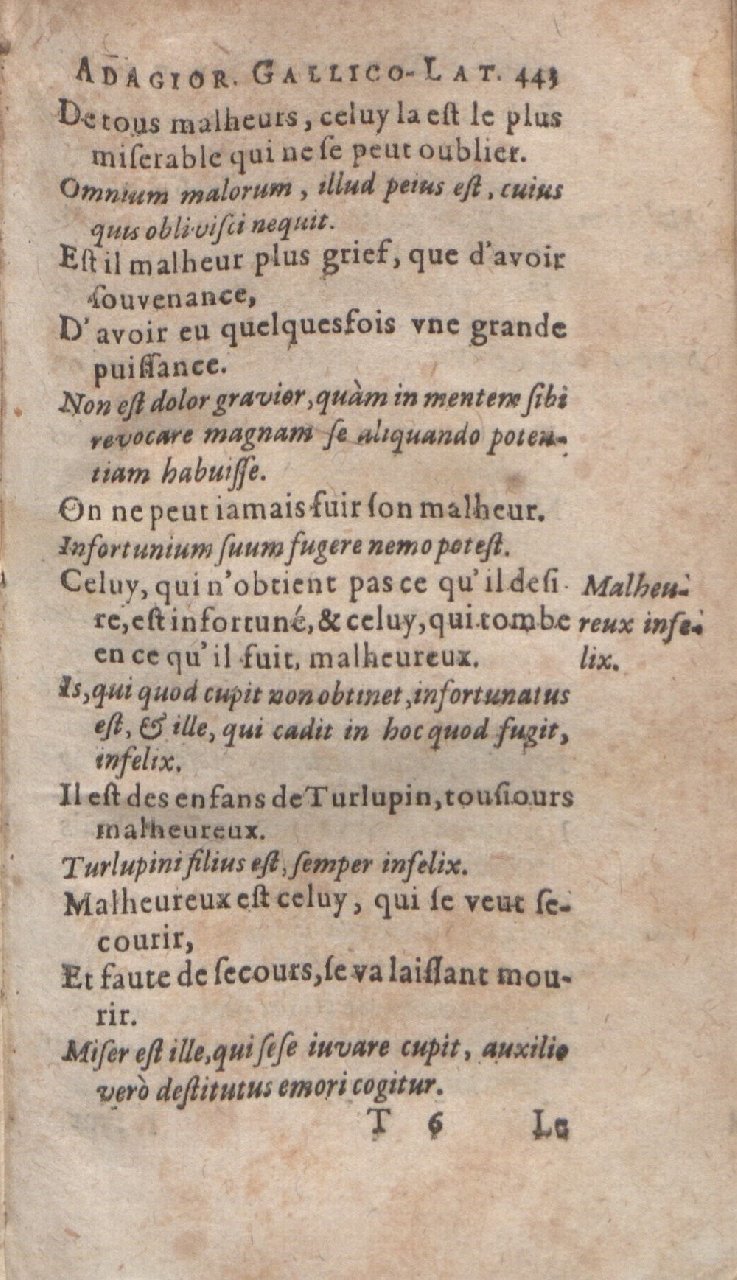 ADAGIOR. GALLICO-LAT. 443
De tous malheurs, celuy la eſt le plus
miſerable qui ne ſe peut oublier.
Omnium malorum, illud peius eſt, cuius
quis obliviſci nequit.
Eſt il malheur plus grief, que d'avoir
ſouvenance,
D'avoir eu quelquesfois vne grande
puiſſance.
Non eſt dolor gravior, quàm in mentem ſibi
revocare magnam ſe aliquando poten-
tiam habuiſſe.
On ne peut iamais fuir ſon malheur.
Infortunium ſuum fugere nemo poteſt.
Celuy, qui n'obtient pas ce qu'il deſi-
re, eſt infortuné, & celuy, qui tombe
en ce qu'il fuit, malheureux.
Malheu-
reux infe-
lix.
Is, qui quod cupit non obtinet, infortunatus
eſt, & ille, qui cadit in hoc quod fugit,
infelix.
Il eſt des enfans de Turlupin, touſiours
malheureux.
Turlupini filius eſt, ſemper infelix.
Malheureux eſt celuy, qui ſe veut ſe-
courir,
Et faute de ſecours, ſe va laiſſant mou-
rir.
Miſer eſt ille, qui ſeſe iuvare cupit, auxilio
verò deſtitutus emori cogitur.
T 6 Le